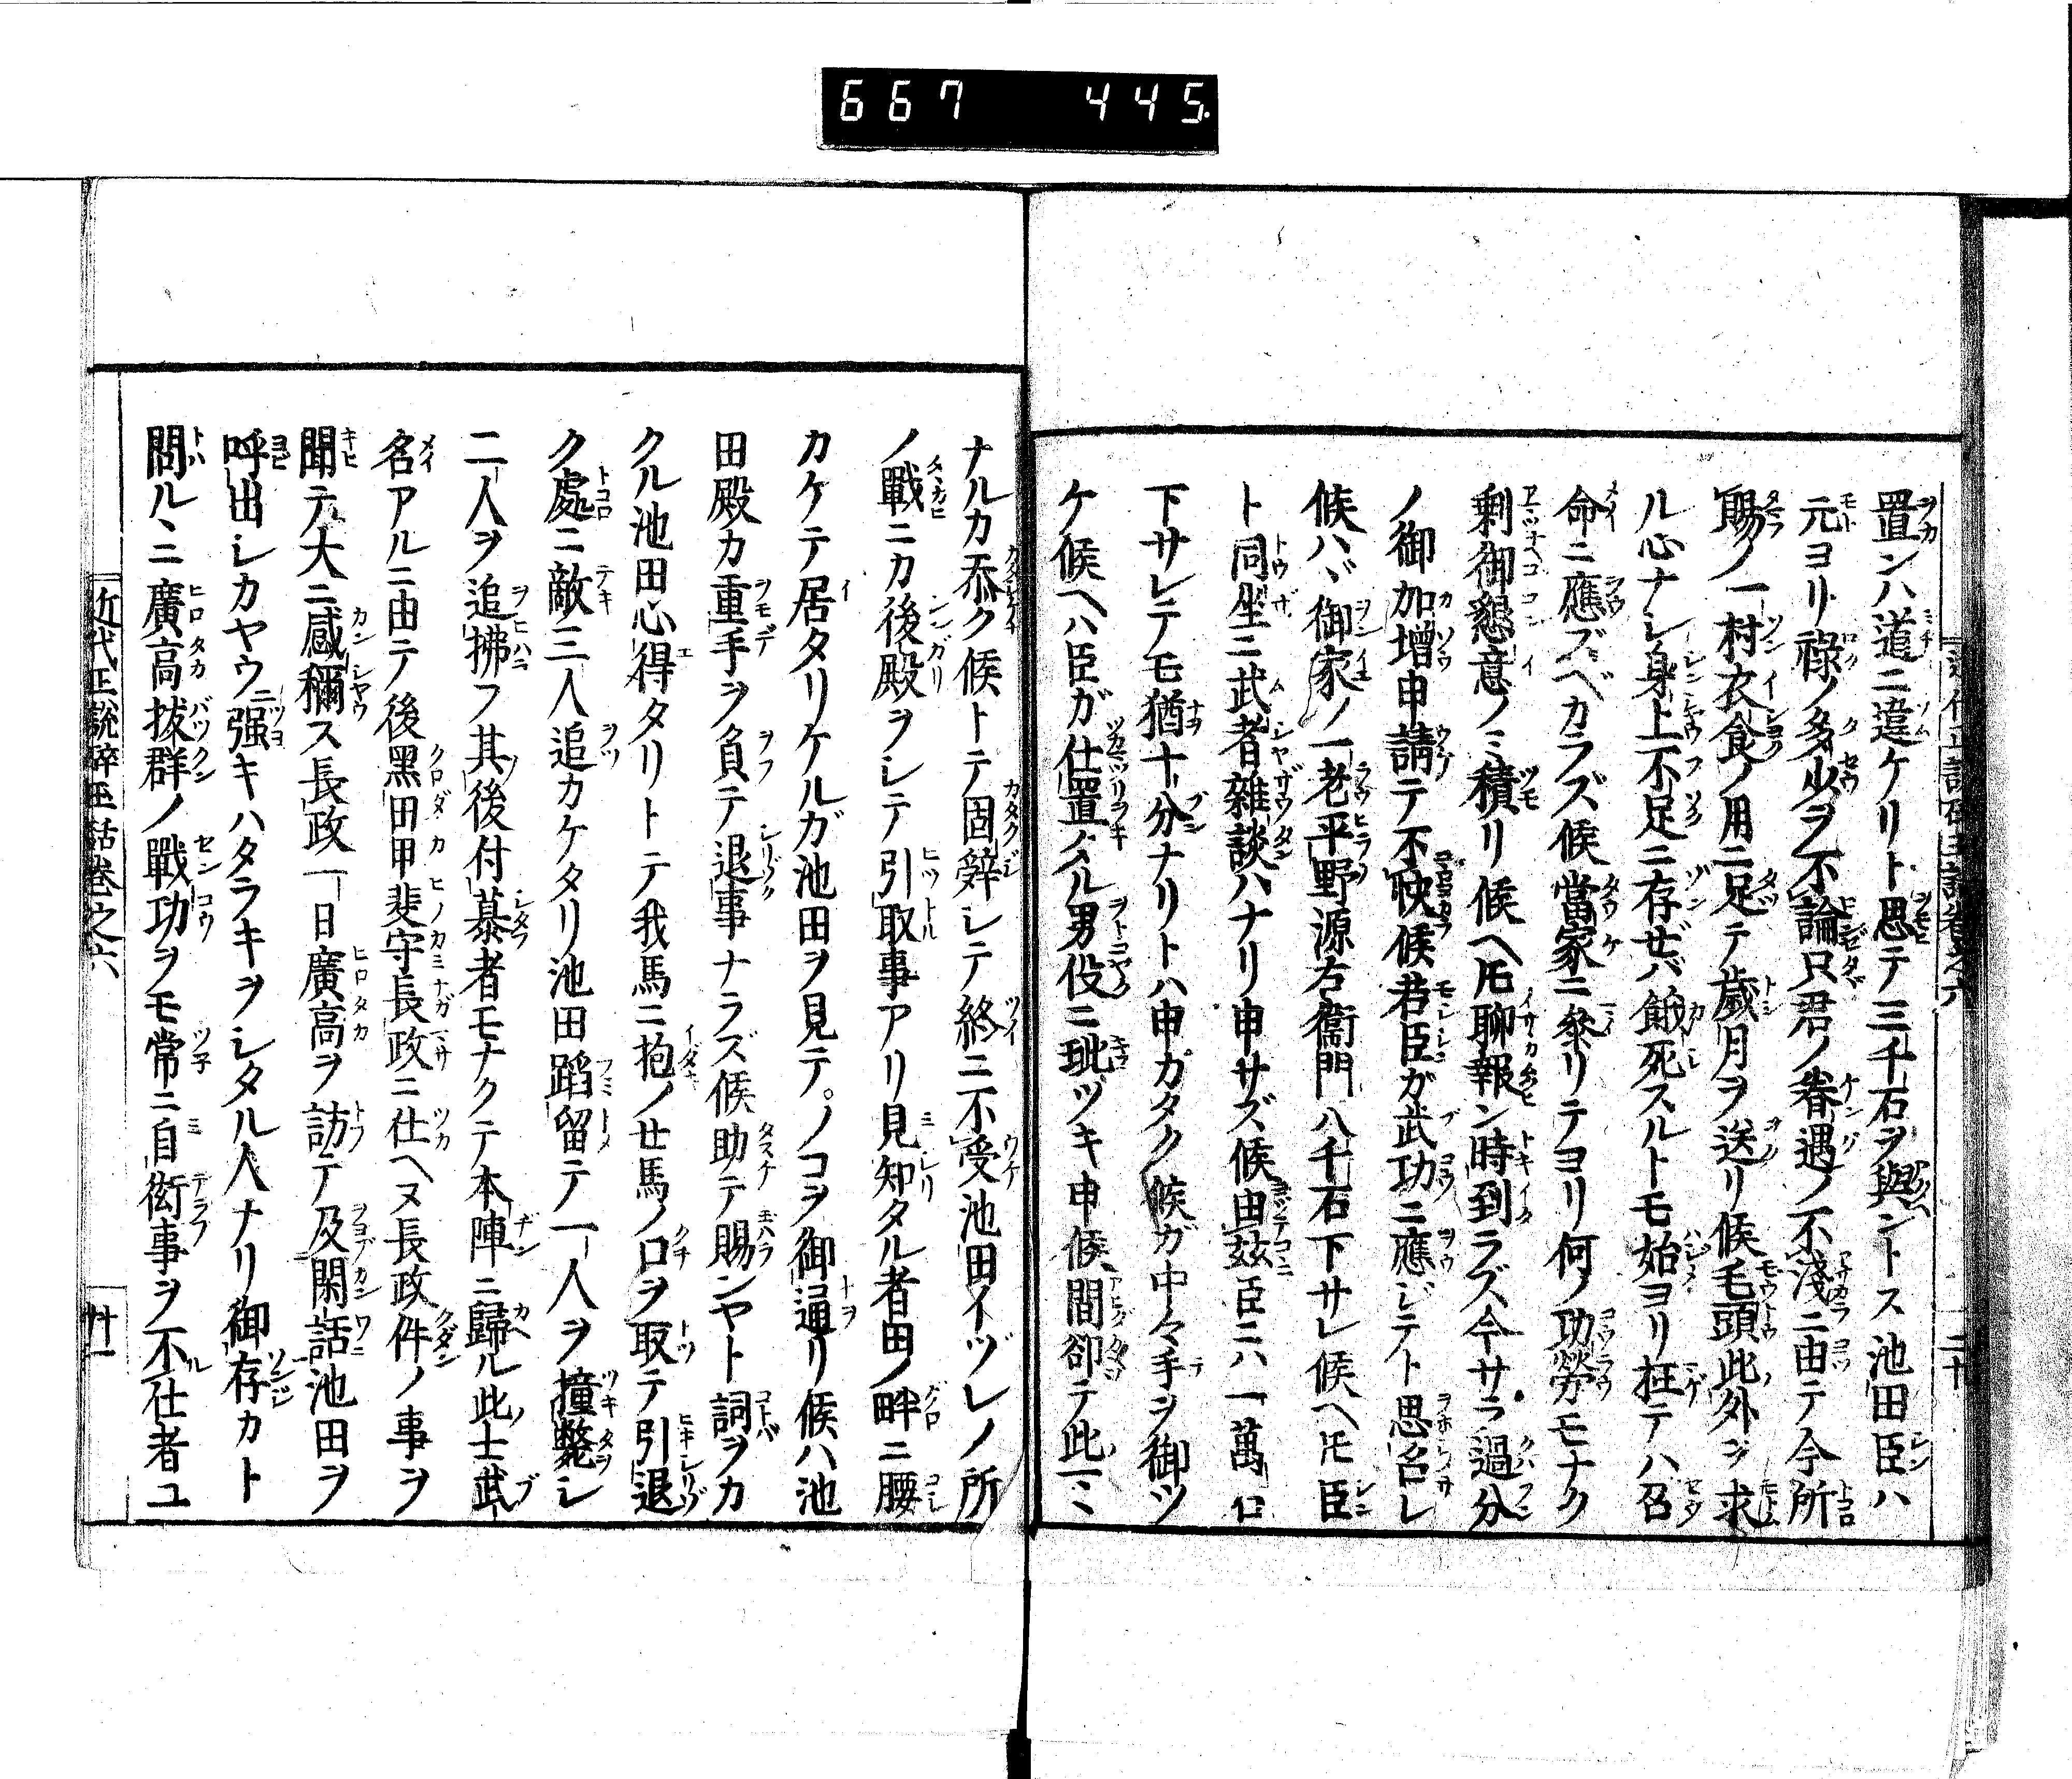 667 445.
置ンハ道ニ違ケリト思テ三千石ヲ與ントス池田臣ハ
元ヨリ祿ノ多少ヲ不論只君ノ眷遇ノ不淺ニ由テ今所
賜ノ一村衣食ノ用ニ足テ歲月ヲ送リ候毛頭此外ヲ求
ル心ナシ身上不足ニ存ゼバ餓死スルトモ始ヨリ枉テハ召
命ニ應ズベカラズ候當家ニ參リテヨリ何ノ功勞モナク
剩御懇意ノミ積リ候ヘ𪜈聊報ン時到ラズ今サラ過分
ノ御加增申請テ不快候若臣ガ武功ニ應ジテト思召レ
候ハヾ御家ノ一老平野源右衞門八千石下サレ候ヘ𪜈臣
ト同坐ニ武者雜談ハナリ申サズ候由玆臣ニハ一萬石
下サレテモ猶十分ナリトハ申ガタク候ガ中々手ヲ御ツ
ケ候ヘハ臣ガ仕置タル男役ニ玼ヅキ申候間卻テ此ミ
ナルカ忝ク候トテ固辤シテ終ニ不受池田イヅレノ所
ノ戰ニカ後殿ヲシテ引取事アリ見知タル者田ノ畔ニ腰
カケテ居タリケルガ池田ヲ見テ。ノコヲ御通リ候ハ池
田殿カ重手ヲ負テ退事ナラズ候助テ賜ンヤト詞ヲカ
クル池田心得タリトテ我馬ニ抱ノセ馬ノ口ヲ取テ引退
ク處ニ敵三人追カケタリ池田蹈留テ一人ヲ撞斃シ
二人ヲ追拂フ其後付慕者モナクテ本陣ニ歸ル此士武
名アルニ由テ後黑田甲斐守長政ニ仕ヘヌ長政件ノ事ヲ
聞テ大ニ感稱ス長政一日廣高ヲ訪テ及閑話池田ヲ
呼出シカヤウニ强キハタラキヲシタル人ナリ御存カト
問ルヽニ廣高拔群ノ戰功ヲモ常ニ自衒事ヲ不仕者ユ
近代正說碎玉話卷之六
廿一